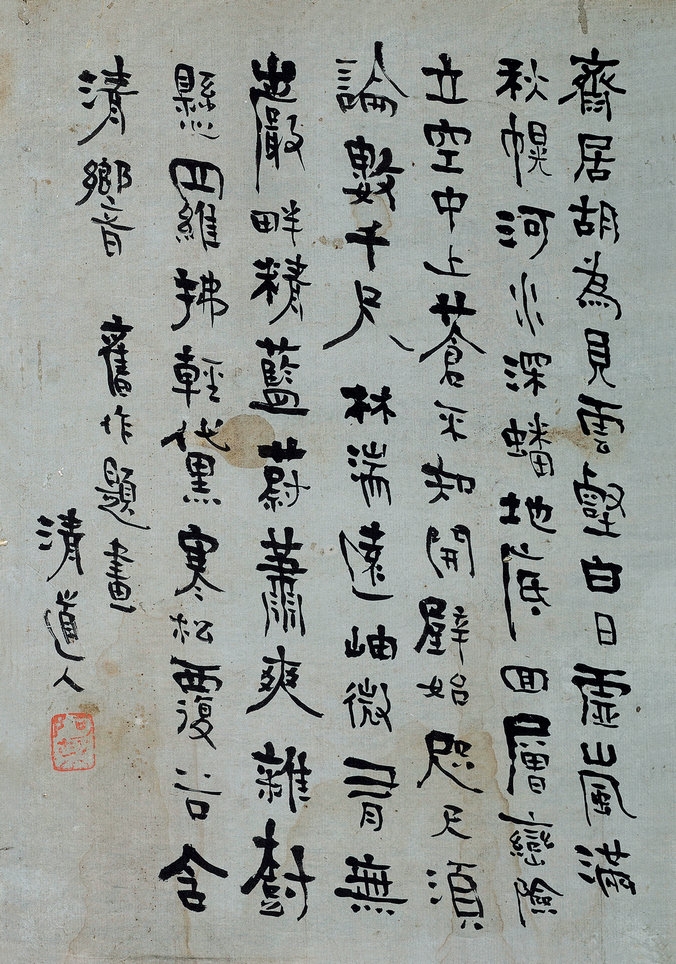 齋居胡為見雲壑白日虛嵐滿
秋幌河水深蟠地底回層巒險
立空中上蒼不知開辟始咫尺須
論數千尺林湍遠岫微有無
巖畔精藍蔚蕭爽雜樹
懸羅拂輕黛寒松覆谷含
清響 舊作題畫
清道人